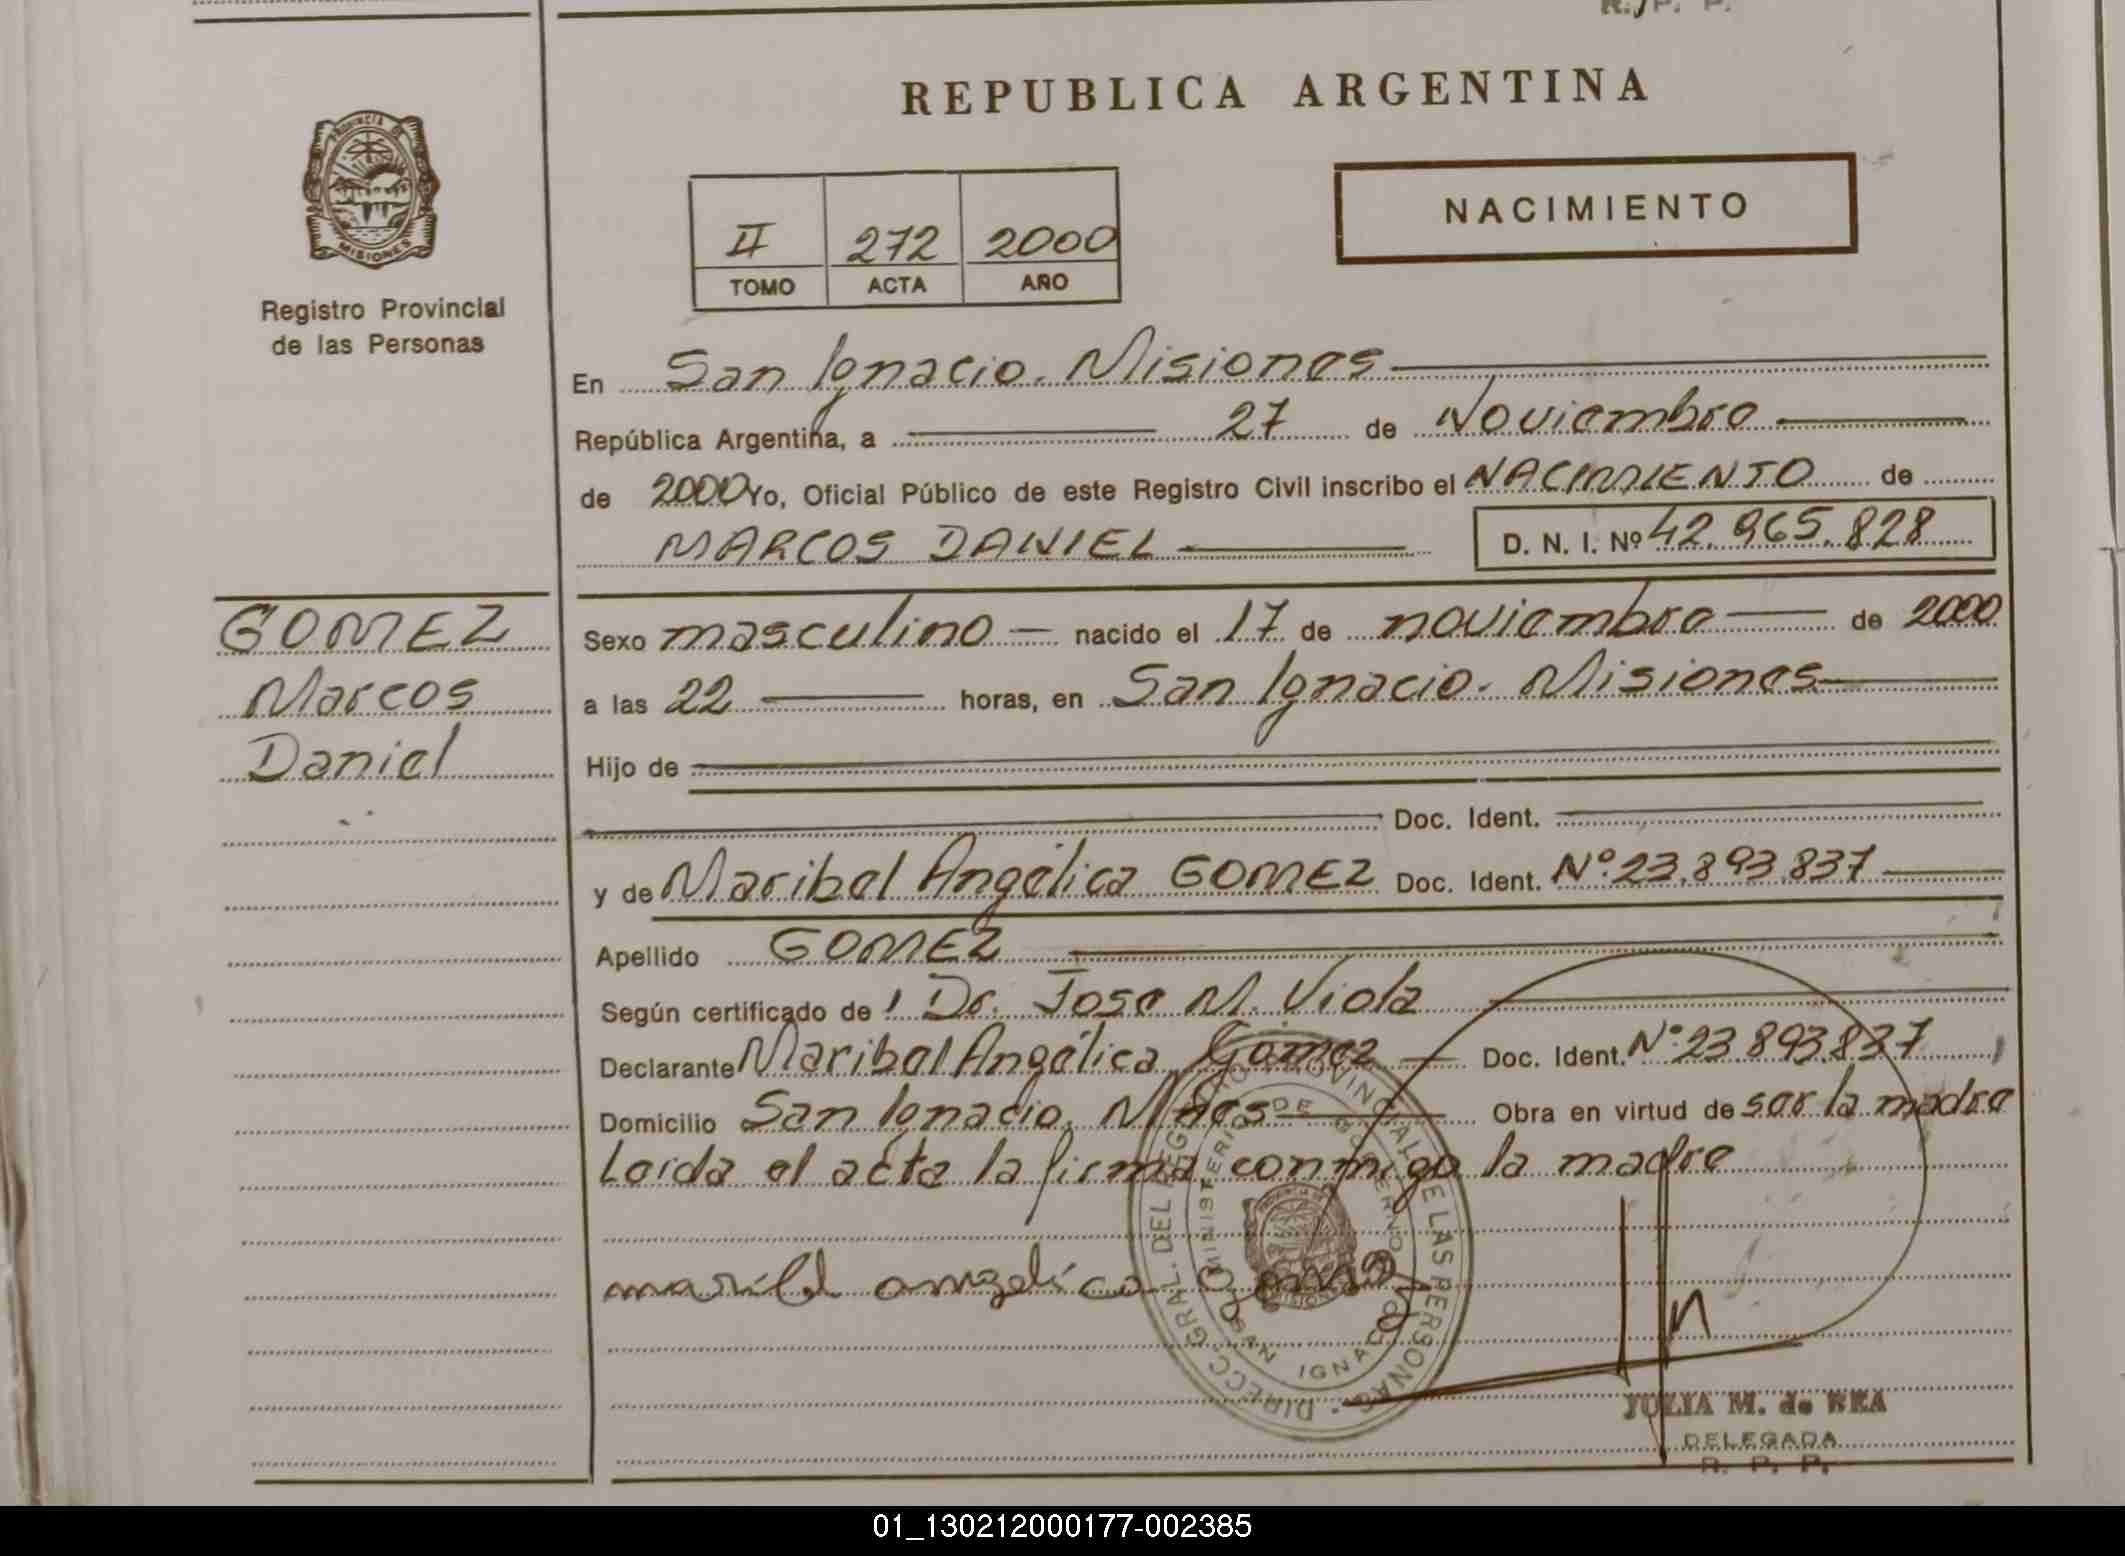 R. P. P.
REPUBLICA ARGENTINA
PROVINCIA DE
MISIONES
Registro Provincial
de las Personas
II 272 2000
TOMO ACTA AÑO
NACIMIENTO
En San Ignacio. Misiones
República Argentina, a 27 de Noviembre
de 2000 Yo, Oficial Público de este Registro Civil inscribo el NACIMIENTO de
MARCOS DANIEL D. N. I. Nº 42.965.828
GOMEZ
Marcos
Daniel
Sexo masculino nacido el 17 de noviembre de 2000
a las 22 horas, en San Ignacio. Misiones
Hijo de
Doc. Ident.
y de Maribel Angélica GOMEZ Doc. Ident. Nº 23.893.837
Apellido GOMEZ
Según certificado de Dr. Jose M. Viola
Declarante Maribel Angélica Gomez Doc. Ident. Nº 23.893.837
Domicilio San Ignacio, Mnes Obra en virtud de ser la madre
Leida el acta la firma conmigo la madre
maribel angélica gomez
DIRECC. GRAL. DEL REGISTRO PROVINCIAL DE LAS PERSONAS
MINISTERIO DE GOBIERNO
SAN IGNACIO
JULIA M. de REA
DELEGADA
R. P. P.
01_130212000177-002385